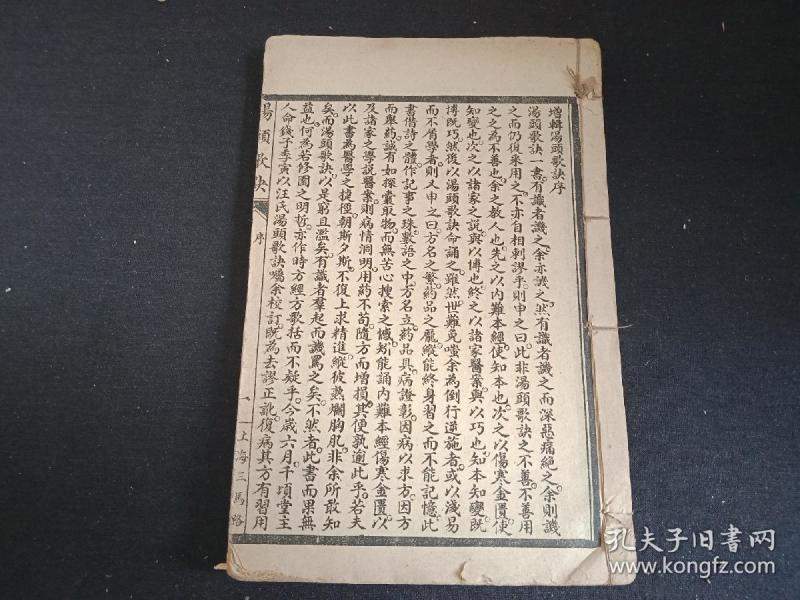 增輯湯頭歌訣序
湯頭歌訣一書有識者譏之余亦譏之然有識者譏之而深惡痛絕之余則譏
之而仍復采用之不亦自相刺謬乎則申之曰此非湯頭歌訣之不善不善用
之之為不善也余之教人也先之以內難本經使知本也次之以傷寒金匱使
知變也次之以諸家之說與以博也終之以諸家醫案與以巧也知本知變既
博既巧然後以湯頭歌訣命誦之雖然世難免嗤余為倒行逆施者或以淺易
而不屑學者則又申之曰方名之繁藥品之龐縱能終身習之而不能記憶此
書借詩之體作記事之珠數語之中方名立藥品具病證彰因病以求方因方
而舉藥誠有如探囊取物而無苦心搜索之憾矧能誦內難本經傷寒金匱以
及諸家之學說醫案則病情洞明用藥不苟隨方而增損其便孰逾此乎若夫
以此書為醫學之捷徑朝斯夕斯不復上求精進縱彼熟爛胸肊非余所敢知
矣而湯頭歌訣以是窮且濫矣有識者羣起而譏罵之矣不然者此書而果無
益也何為若修園之明哲亦作時方經方歌括而不疑乎今歲六月千頃堂主
人命錢子季寅以汪氏湯頭歌訣囑余校訂既為去謬正訛復病其方有習用
湯頭歌訣
序
一
上海三馬路
孔夫子旧书网
www.kongfz.com